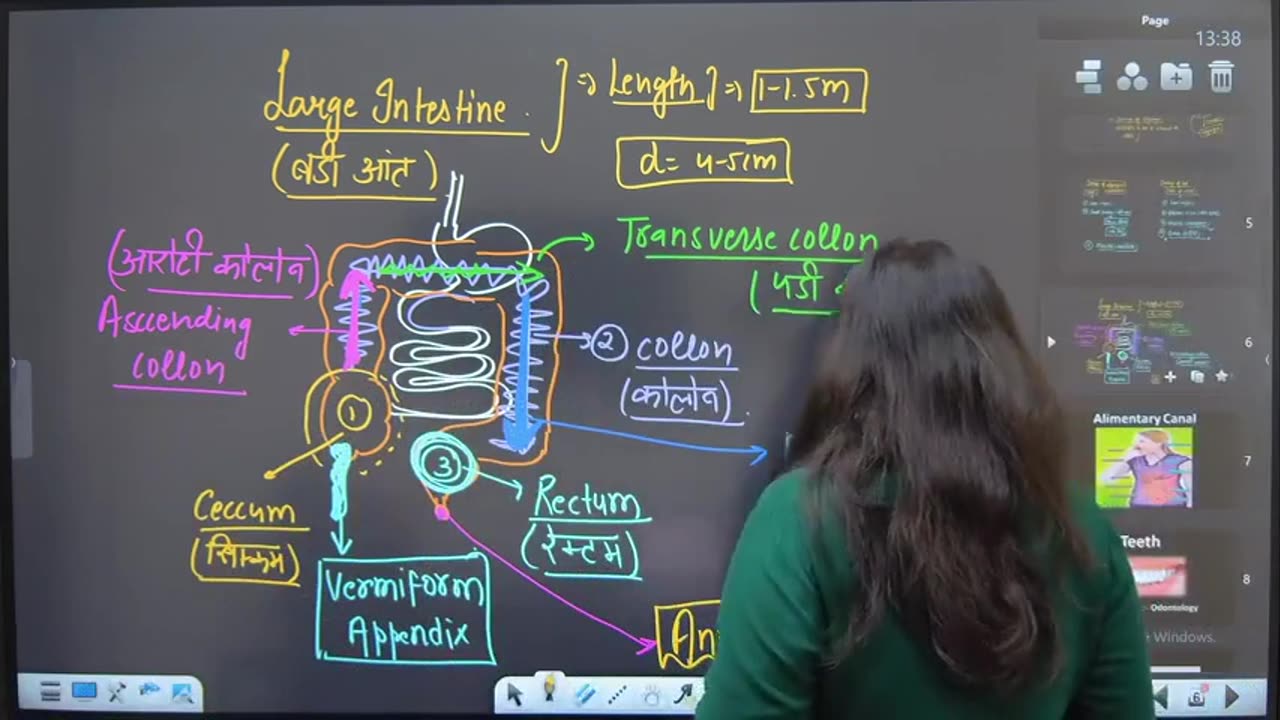 Page
13:38
Large Intestine . ] => Length ] => 1-1.5m
(बडी आंत)
d= 4-5cm
Transverse collon
(पडी
(आरोटी कोलोन)
Asccending
collon
② collon
(कोलोन).
①
③
Ceccum
(सिक्कम)
Rectum
(रेस्टम)
Vermiform
Appendix
An
5
6
Alimentary Canal
7
Teeth
8
Odontology
Windows.